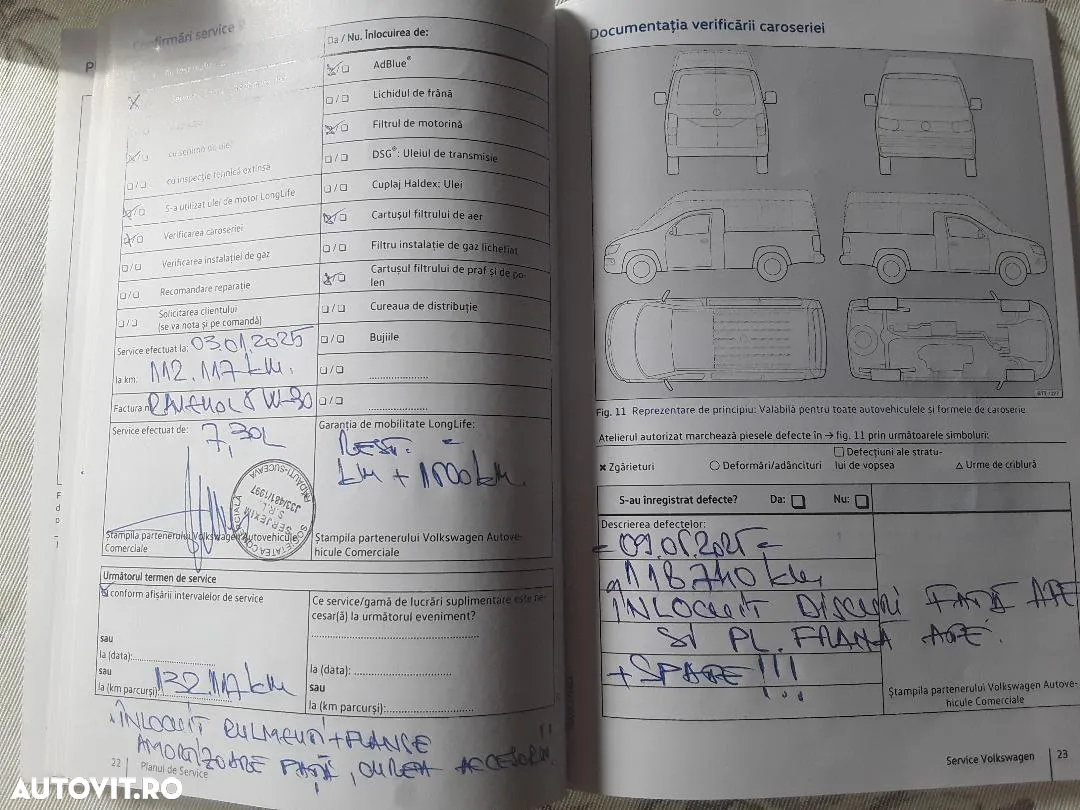 Confirmări service
Da / Nu. Înlocuirea de:
AdBlue®
Lichidul de frână
Filtrul de motorină
cu schimb de ulei
DSG®: Uleiul de transmisie
cu inspecție tehnică extinsă
Cuplaj Haldex: Ulei
S-a utilizat ulei de motor LongLife
Cartușul filtrului de aer
Verificarea caroseriei
Filtru instalație de gaz lichefiat
Verificarea instalației de gaz
Cartușul filtrului de praf și de po-
len
Recomandare reparație
Cureaua de distribuție
Solicitarea clientului
(se va nota și pe comandă)
Bujiile
Service efectuat la: 03.01.2025
la km: 112.117 km.
Factura n
Service efectuat de: 7,30L
Garanția de mobilitate LongLife:
REST. =
km + 1500 km.
SOCIETATEA COMERCIALĂ
SERJEXIM
S.R.L.
J33/481/1997
RĂDĂUȚI-SUCEAVA
Ștampila partenerului Volkswagen Autovehicule
Comerciale
Ștampila partenerului Volkswagen Autove-
hicule Comerciale
Următorul termen de service
conform afișării intervalelor de service
sau
la (data):
sau
la (km parcurși): 132.117 km
Ce service/gamă de lucrări suplimentare este ne-
cesar(ă) la următorul eveniment?
la (data):
sau
la (km parcurși):
ÎNLOCUIT RULMENȚI + FLANSE
AMORTIZOARE FAȚĂ, CUREA ACCESORII
22 Planul de Service
Documentația verificării caroseriei
Fig. 11 Reprezentare de principiu: Valabilă pentru toate autovehiculele și formele de caroserie
Atelierul autorizat marchează piesele defecte în → fig. 11 prin următoarele simboluri:
Zgârieturi
Deformări/adâncituri
Defecțiuni ale stratu-
lui de vopsea
Urme de criblură
S-au înregistrat defecte? Da: Nu:
Descrierea defectelor:
= 09.05.2025 =
118740 km
ÎNLOCUIT DISCURI FAȚĂ
SI PL. FRANA
+ SPATE !!!
Ștampila partenerului Volkswagen Autove-
hicule Comerciale
Service Volkswagen 23
AUTOVIT.RO